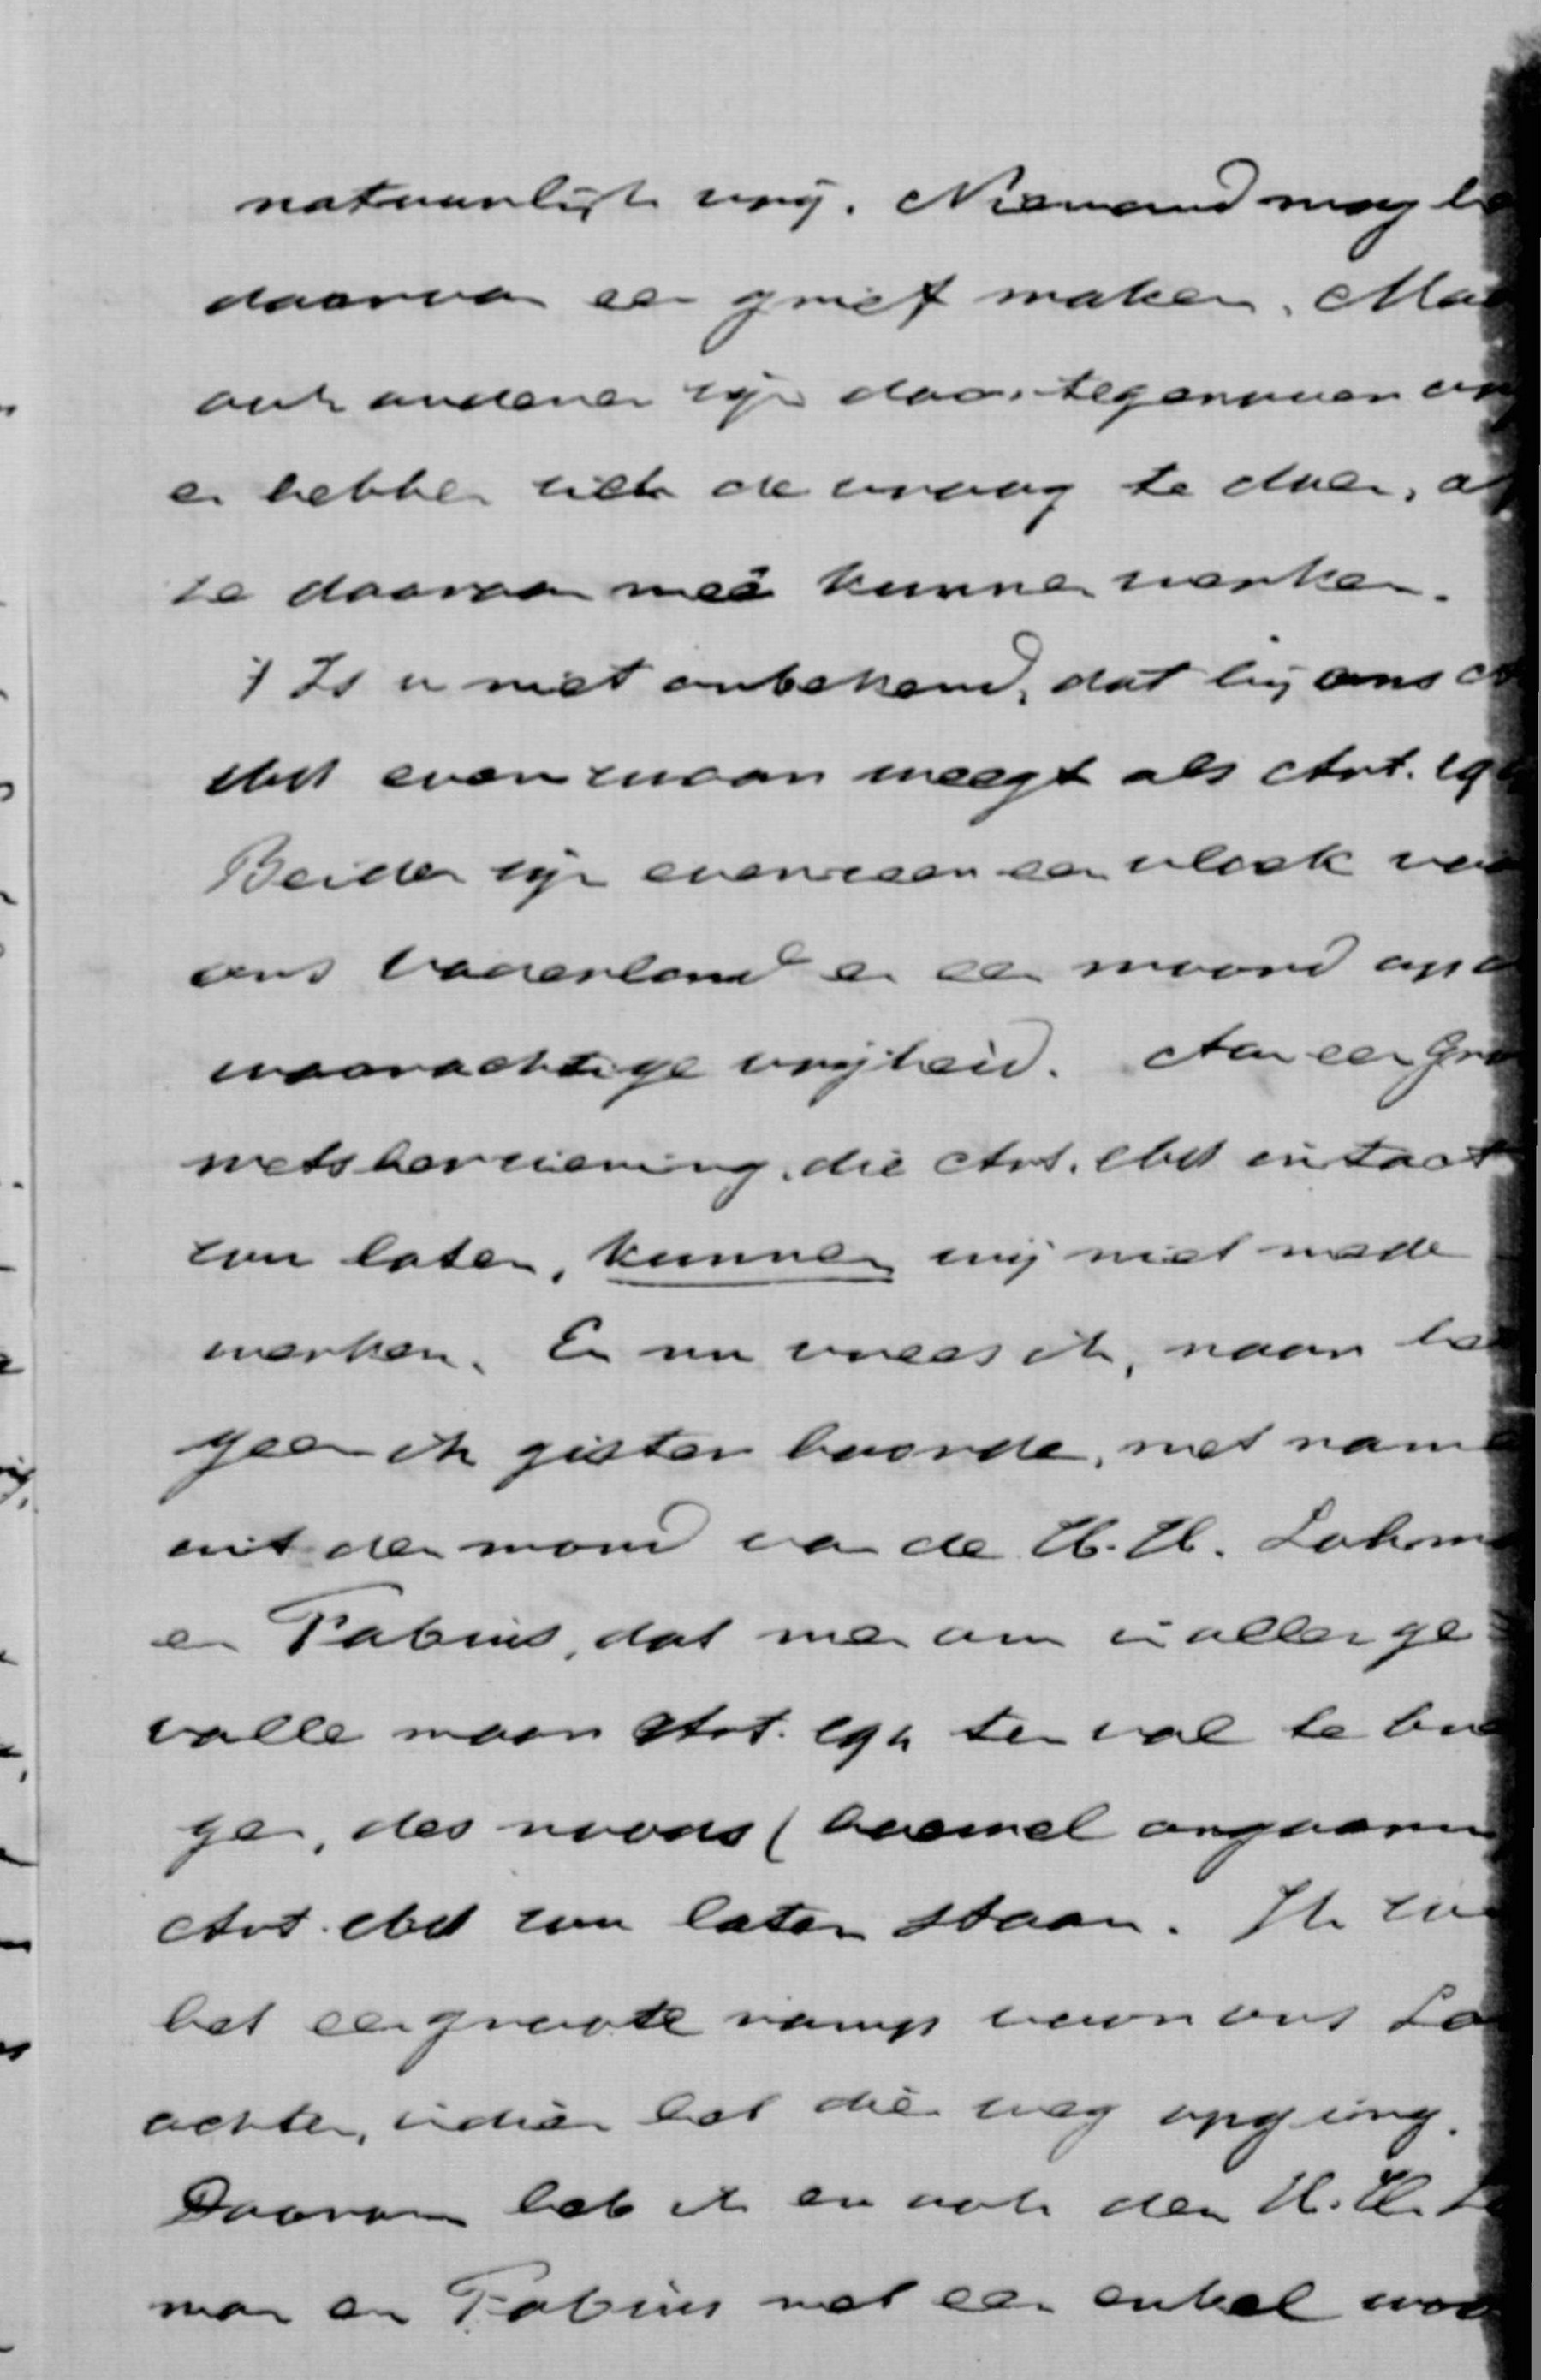 natuurlijk vrij. Niemand mag
daarvan een grief maken. Maar
ook anderen zijn daartegenover
en hebben zich de vraag te doen, of
ze daaraan meê kunnen werken.
Is u niet onbekend, dat bij ons
evenzwaar weegt als Art. 194
Beiden zijn evenzeer een vloek voor
ons vaderland en een moord op
waarachtige vrijheid. Aan een
wetsherziening, die Art. intact
zou laten, kunnen wij niet mede
werken. En nu vrees ik, naar
geen ik gister hoorde, met name
uit den mond van de H.H. Lohm
en Fabius, dat men om in allen ge
valle maar Art. 194 ten val te
gen, des noods (hoewel ongaarne
Art. zou laten staan. Ik zou
het een groote ramp voor ons
achten, indien het dien weg opging.
Daarom heb ik en ook den H.H.
man en Fabius met een enkel